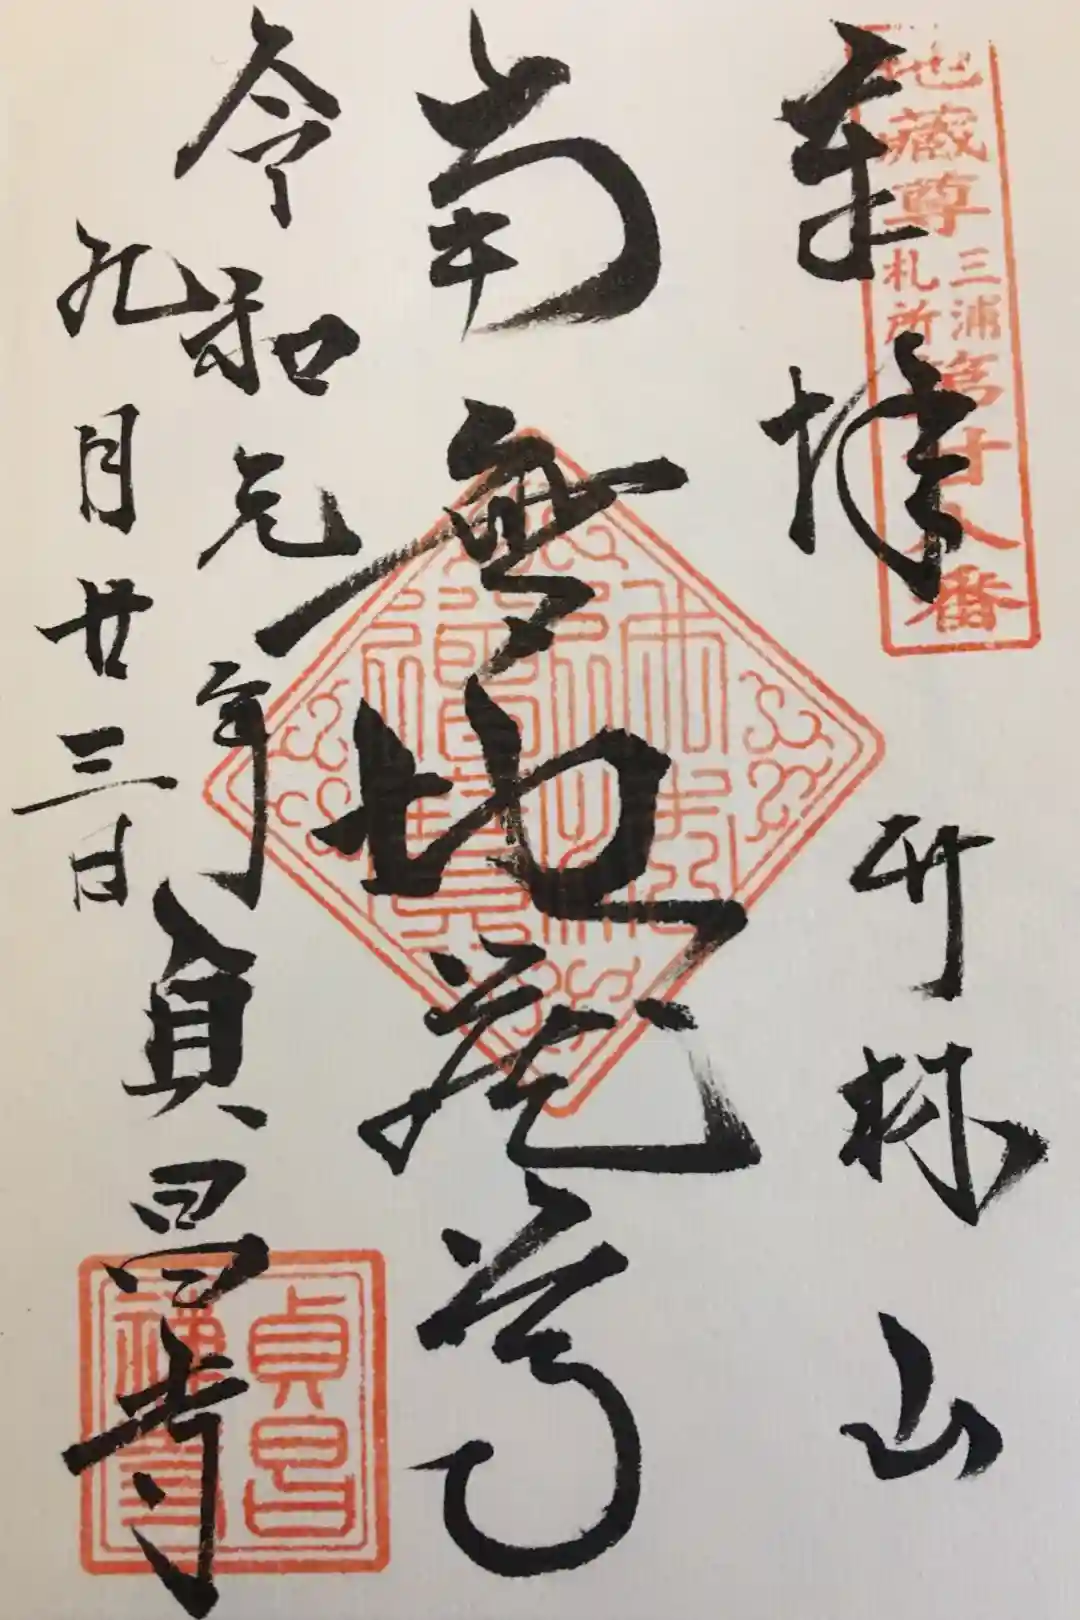 地蔵尊
三浦
札所
第廿八番
奉拝
竹林山
南無地蔵尊
佛法僧寳
令和元年
九月廿三日
貞昌寺
貞昌禅寺